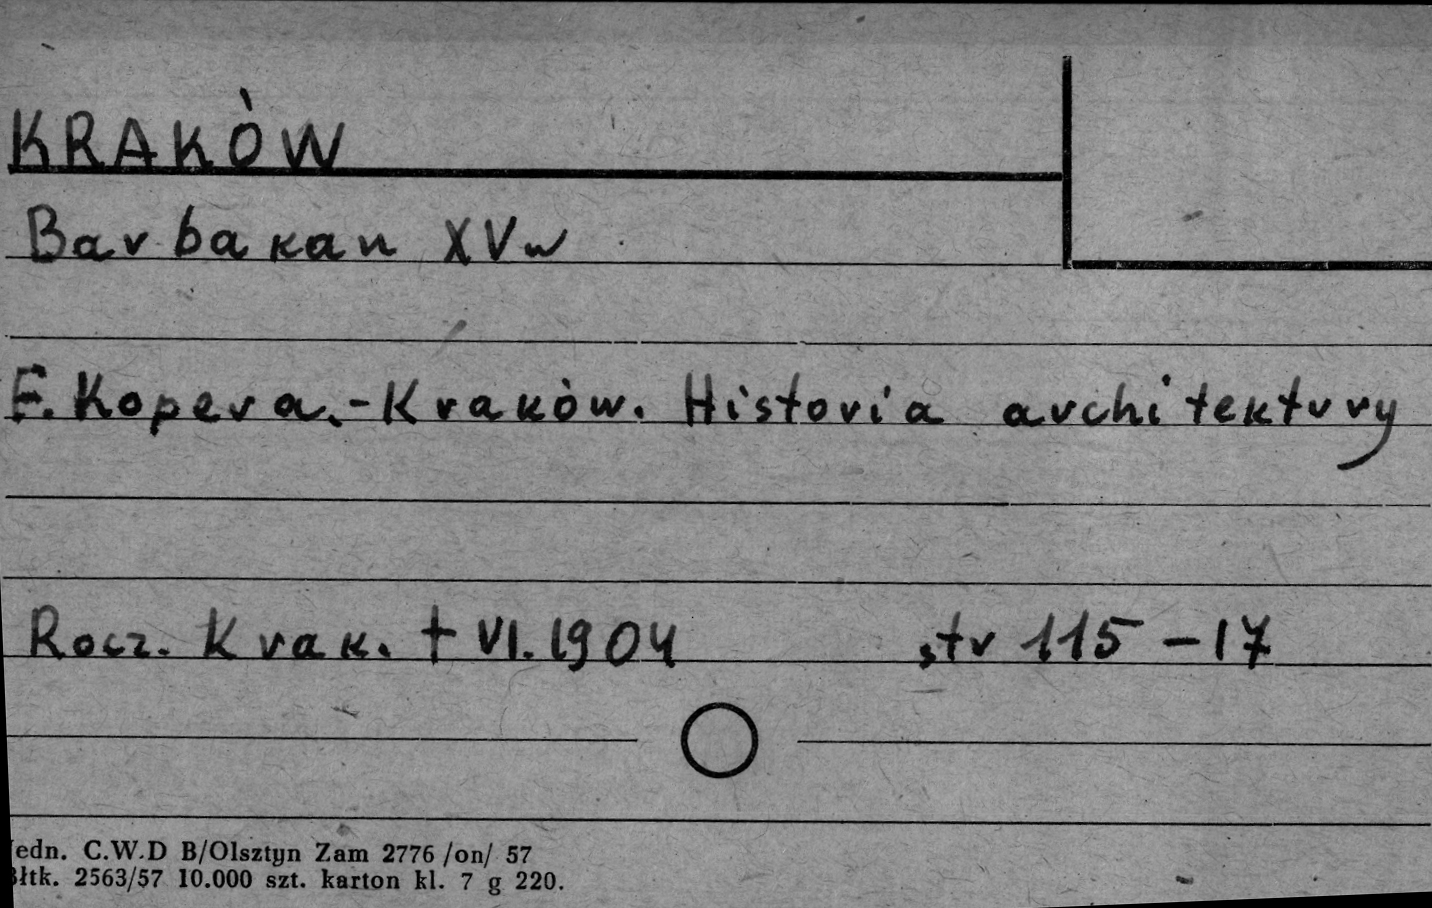 KRAKÒW
Barbakan XVw
F. Kopera.-Kraków. Historia architektury
Rocz. Krak. t VI. 1904 str 115-17
edn. C.W.D B/Olsztyn Zam 2776 /on/ 57
łtk. 2563/57 10.000 szt. karton kl. 7 g 220.